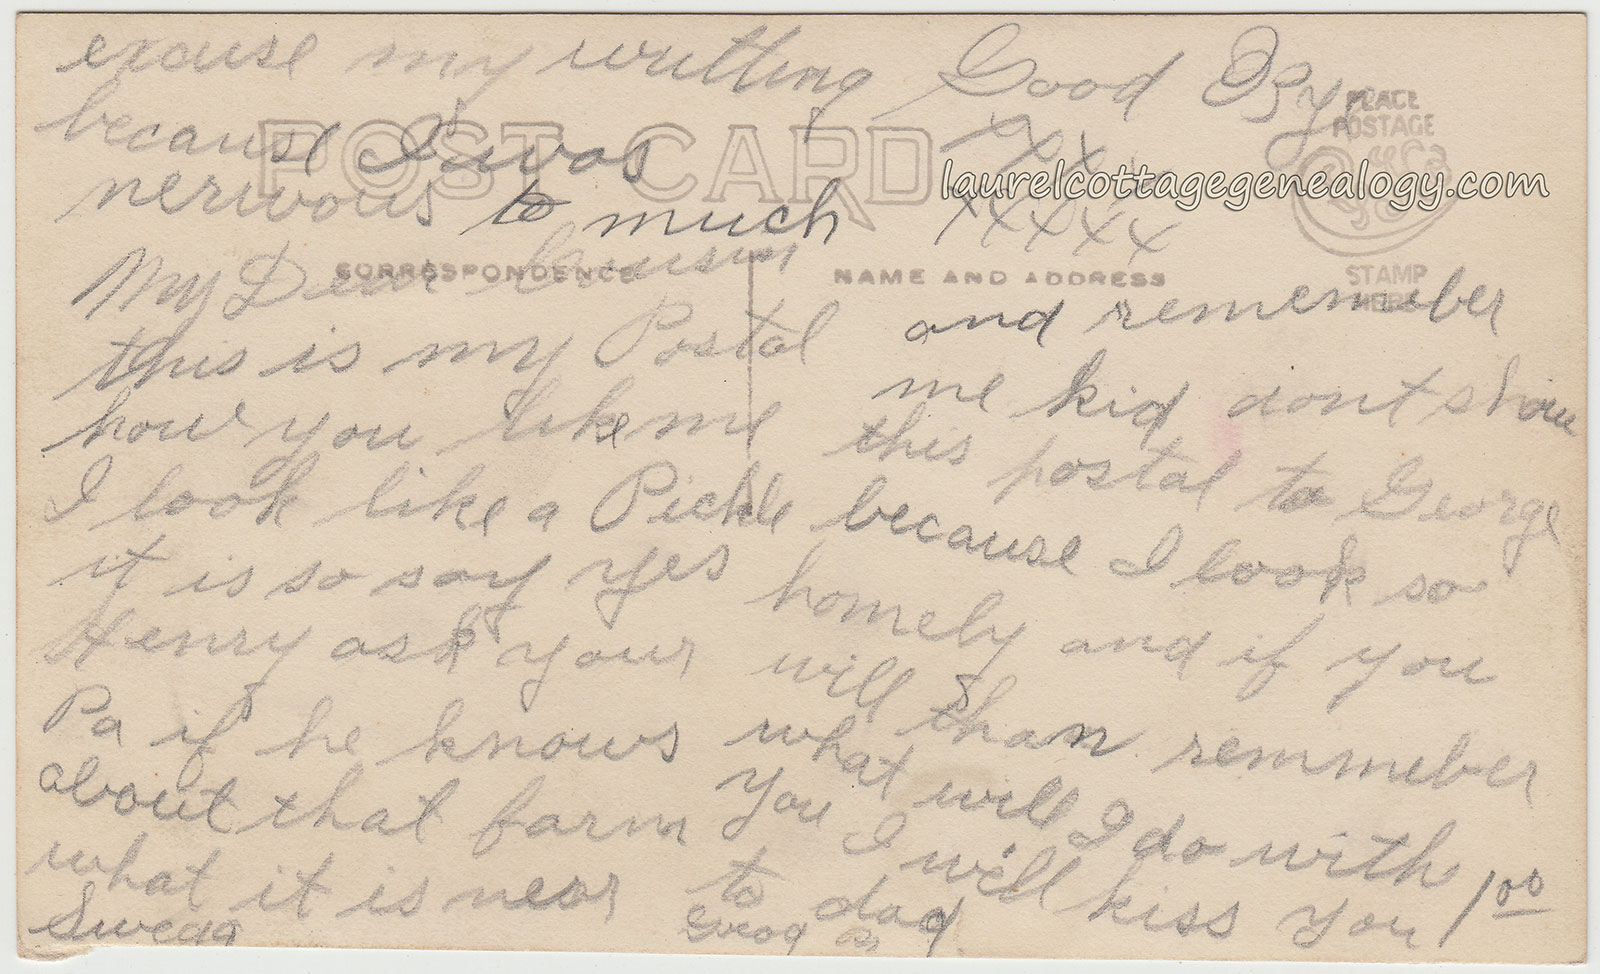 excuse my writting
because I was
nervous to much
Good By
x x x
x x x x x
POST CARD
PLACE
POSTAGE
STAMP
HERE
laurelcottagegenealogy.com
CORRESPONDENCE
NAME AND ADDRESS
My Dear Cousin
this is my Postal
how you like me
I look like a Pickle
it is so say yes
Henry ask your
Pa if he knows
about that farm
what it is near to dad
and remember
me kid dont show
this postal to George
because I look so
homely and if you
will than remmeber
what will I do with
you I will kiss you 100